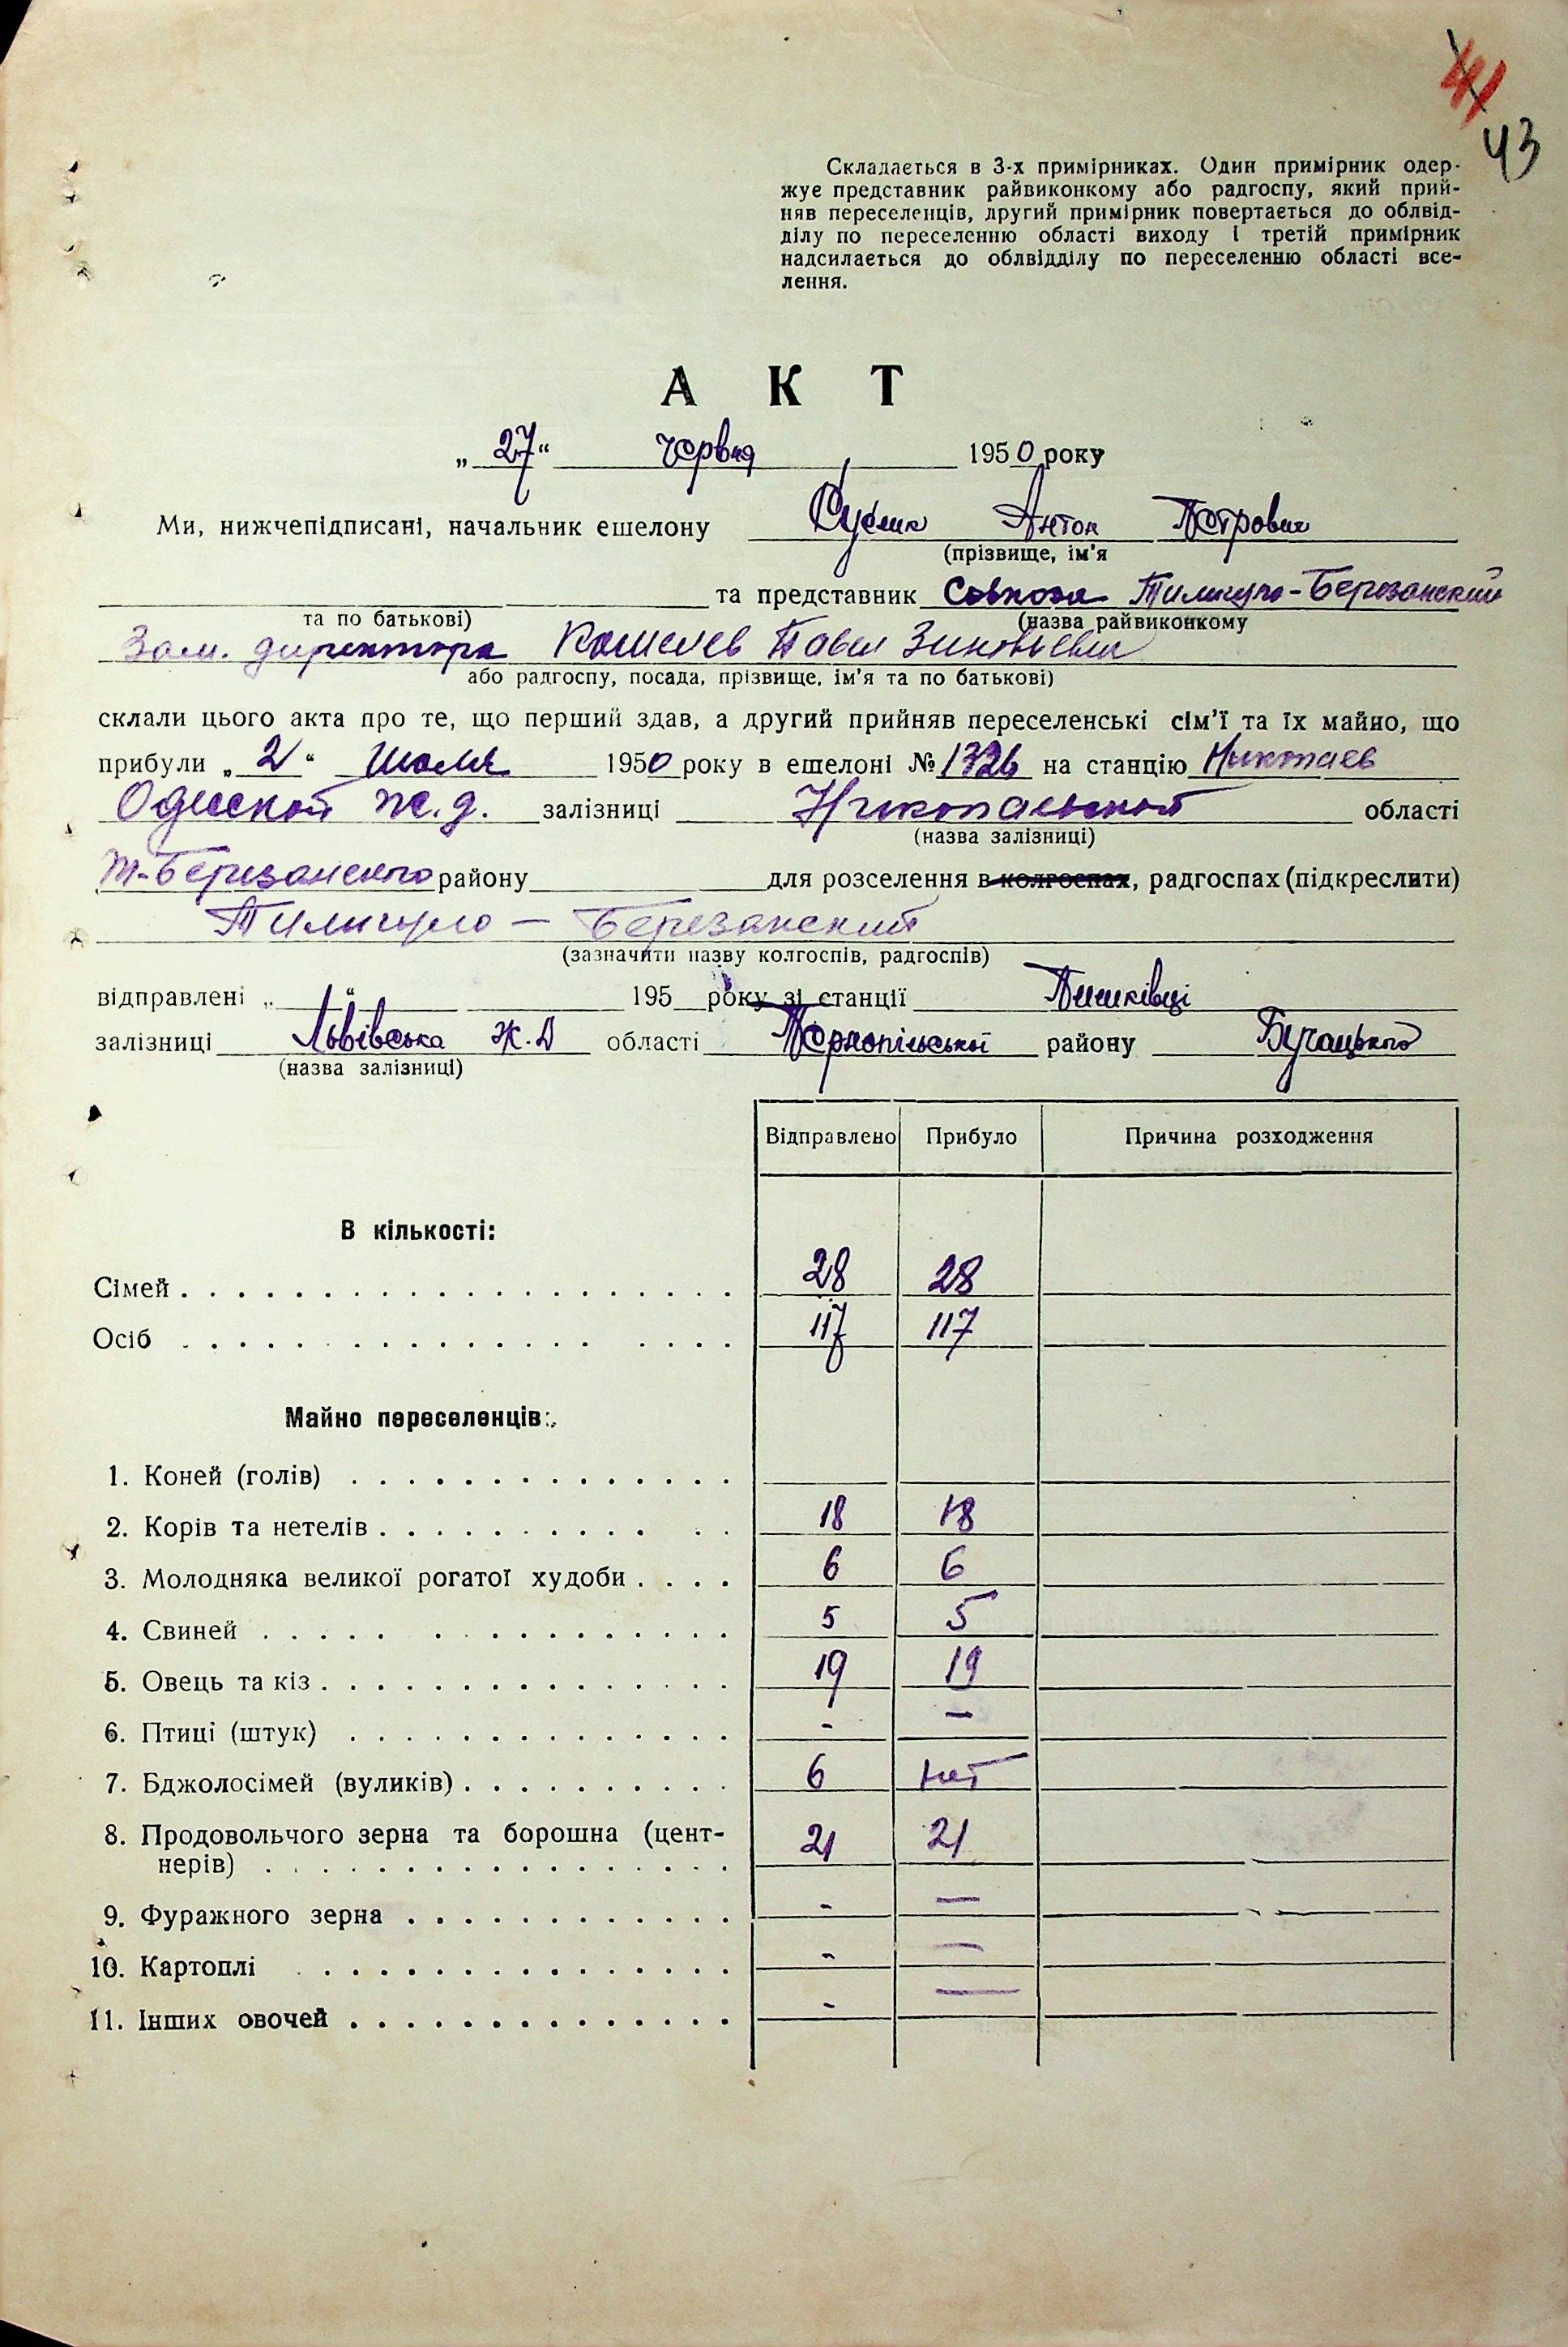 43
Складається в 3-х примірниках. Один примірник одер-
жує представник райвиконкому або радгоспу, який прий-
няв переселенців, другий примірник повертається до облвід-
ділу по переселенню області виходу і третій примірник
надсилається до облвідділу по переселенню області все-
лення.
АКТ
„27“ червня 1950 року
Ми, нижчепідписані, начальник ешелону Антон Петрович
(прізвище, ім'я
та представник Совхоза Тилигуло-Березанский
та по батькові) (назва райвиконкому
Зам. директора Кошелев Павел Зиновьевич
або радгоспу, посада, прізвище, ім'я та по батькові)
склали цього акта про те, що перший здав, а другий прийняв переселенські сім'ї та їх майно, що
прибули „2“ Июля 1950 року в ешелоні № 1326 на станцію Николаев
Одесской ж.д. залізниці Николаевской області
(назва залізниці)
Т-Березанского району для розселення в колгоспах, радгоспах (підкреслити)
Тилигуло – Березанский
(зазначити назву колгоспів, радгоспів)
відправлені „ “ 195 року зі станції Пишківці
залізниці Львівська Ж.Д області Тернопільської району Бучацького
(назва залізниці)
Відправлено Прибуло Причина розходження
В кількості:
Сімей 28 28
Осіб 117 117
Майно переселенців:
1. Коней (голів)
2. Корів та нетелів 18 18
3. Молодняка великої рогатої худоби 6 6
4. Свиней 5 5
5. Овець та кіз 19 19
6. Птиці (штук) - —
7. Бджолосімей (вуликів) 6 нет
8. Продовольчого зерна та борошна (цент-
нерів) 21 21
9. Фуражного зерна - —
10. Картоплі - —
11. Інших овочей - —